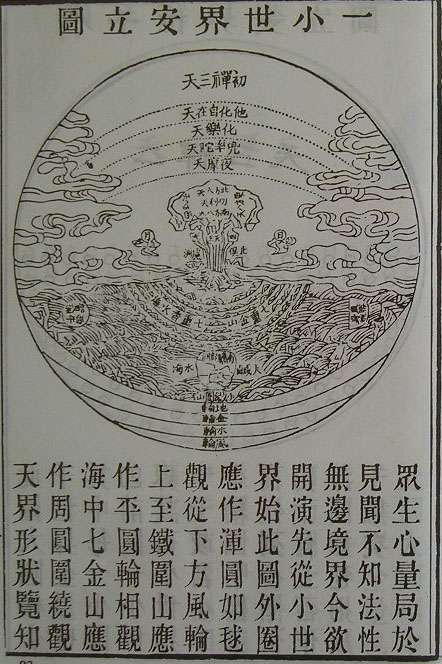 一小世界安立圖
初禪三天
他化自在天
化樂天
兜率陀天
夜摩天
忉利天
日
月
七重金山七重香水海
地輪
金輪
水輪
風輪
眾生心量局於
見聞不知法性
無邊境界今欲
開演先從小世
界始此圖外圈
應作渾圓如毬
觀從下方風輪
上至鐵圍山應
作平圓輪相觀
海中七金山應
作周圓圍繞觀
天界形狀覽知